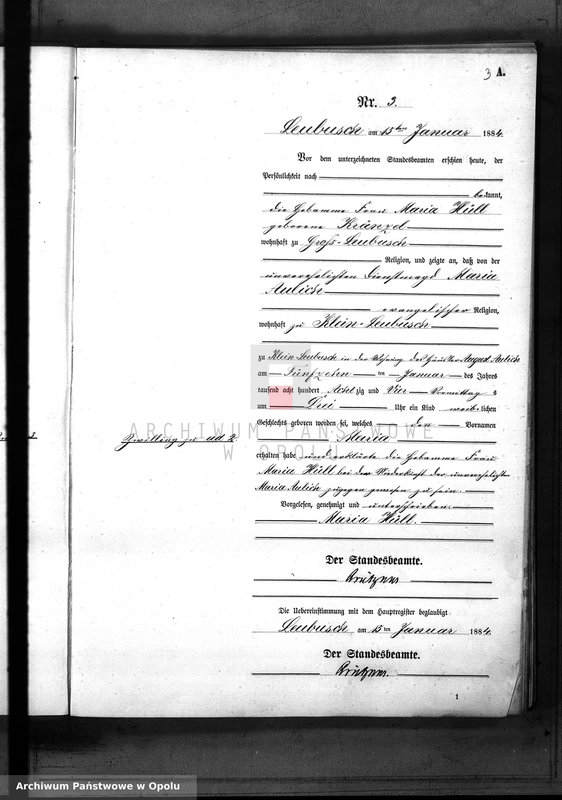 3 A.
Nr. 3.
Leubusch am 15ten Januar 1884.
Vor dem unterzeichneten Standesbeamten erschien heute, der
Persönlichkeit nach
bekannt,
die Hebamme Frau Maria Hüll
geborene Kränzel
wohnhaft zu Groß-Leubusch
Religion, und zeigte an, daß von der
unverehelichten Dienstmagd Maria
Aulich
evangelischer Religion,
wohnhaft zu Klein-Leubusch
zu Klein Leubusch in der Wohnung des Häusler August Aulich
am Fünfzehn ten Januar des Jahres
tausend acht hundert Achtzig und Vier Vormittag s
um Drei Uhr ein Kind weiblichen
Geschlechts geboren worden sei, welches den Vornamen
Zwilling zu ad 2
Maria
erhalten habe und erklärte die Hebamme Frau
Maria Hüll bei der Niederkunft der unverehelichten
Maria Aulich zugegen gewesen zu sein.
Vorgelesen, genehmigt und unterschrieben.
Maria Hüll.
Der Standesbeamte.
Die Uebereinstimmung mit dem Hauptregister beglaubigt
Leubusch am 15ten Januar 1884.
Der Standesbeamte.
1
ARCHIWUM PAŃSTWOWE
W OPOLU
Archiwum Państwowe w Opolu